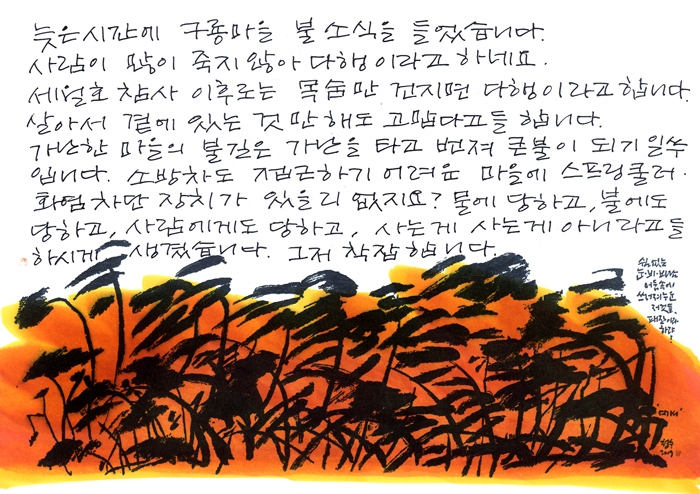 늦은 시간에 구룡마을 불 소식을 들었습니다.
사람이 많이 죽지 않아 다행이라고 하네요.
세월호 참사 이후로는 목숨만 건지면 다행이라고 합니다.
살아서 곁에 있는 것만 해도 고맙다고들 합니다.
가난한 마을의 불길은 가난을 타고 번져 큰불이 되기 일쑤
입니다. 소방차도 접근하기 어려운 마을에 스프링쿨러·
화염차단 장치가 있을리 없지요? 물에 당하고, 불에도
당하고, 사람에게도 당하고, 사는게 사는게 아니라고들
하시게 생겼습니다. 그저 착잡합니다.
눈·비·바람
어둠속에